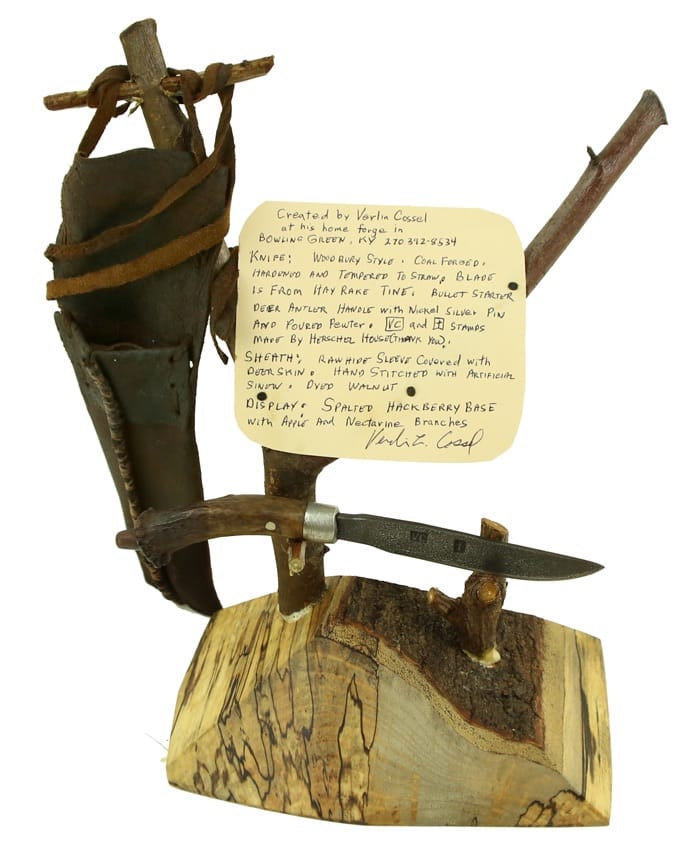 Created by Verlin Cossel
at his home forge in
BOWLING GREEN, KY 270 392-8534
KNIFE: WOODBURY STYLE. COAL FORGED.
HARDENED AND TEMPERED TO STRAW. BLADE
IS FROM HAY RAKE TINE. BULLET STARTER
DEER ANTLER HANDLE with Nickel Silver PIN
AND POURED PEWTER. VC and + STAMPS
MADE BY HERSCHEL HOUSE (THANK YOU).
SHEATH: RAWHIDE SLEEVE Covered with
DEERSKIN. HAND STITCHED with ARTIFICIAL
SINEW. DYED WALNUT
DISPLAY: SPALTED HACKBERRY BASE
with Apple And Nectarine Branches
Verlin L. Cossel
VC